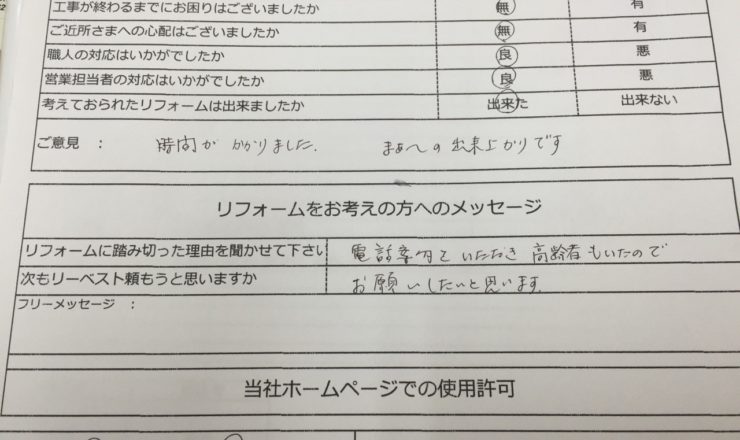 工事が終わるまでにお困りはございましたか 無 有
ご近所さまへの心配はございましたか 無 有
職人の対応はいかがでしたか 良 悪
営業担当者の対応はいかがでしたか 良 悪
考えておられたリフォームは出来ましたか 出来た 出来ない
ご意見 : 時間が かかりました. まあ〜の出来上がりです
リフォームをお考えの方へのメッセージ
リフォームに踏み切った理由を聞かせて下さい 電話案内を いただき 高齢者もいたので
次もリーベスト頼もうと思いますか お願いしたいと思います.
フリーメッセージ :
当社ホームページでの使用許可